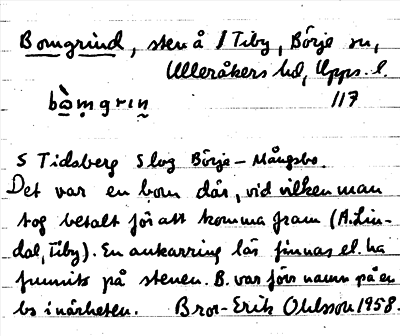 Bomgrind, sten å S Tiby, Börje sn,
Ulleråkers hd, Upps. l.
bòmgrin 117
S Tidsberg S lvg Börje - Mångsbo.
Det var en bom där, vid vilken man
tog betalt för att komma fram (A. Lin-
dal, Tiby). En ankarring lär finnas el. ha
funnits på stenen. B. var förr namn på en
bs i närheten. Bror-Erik Ohlsson 1958.